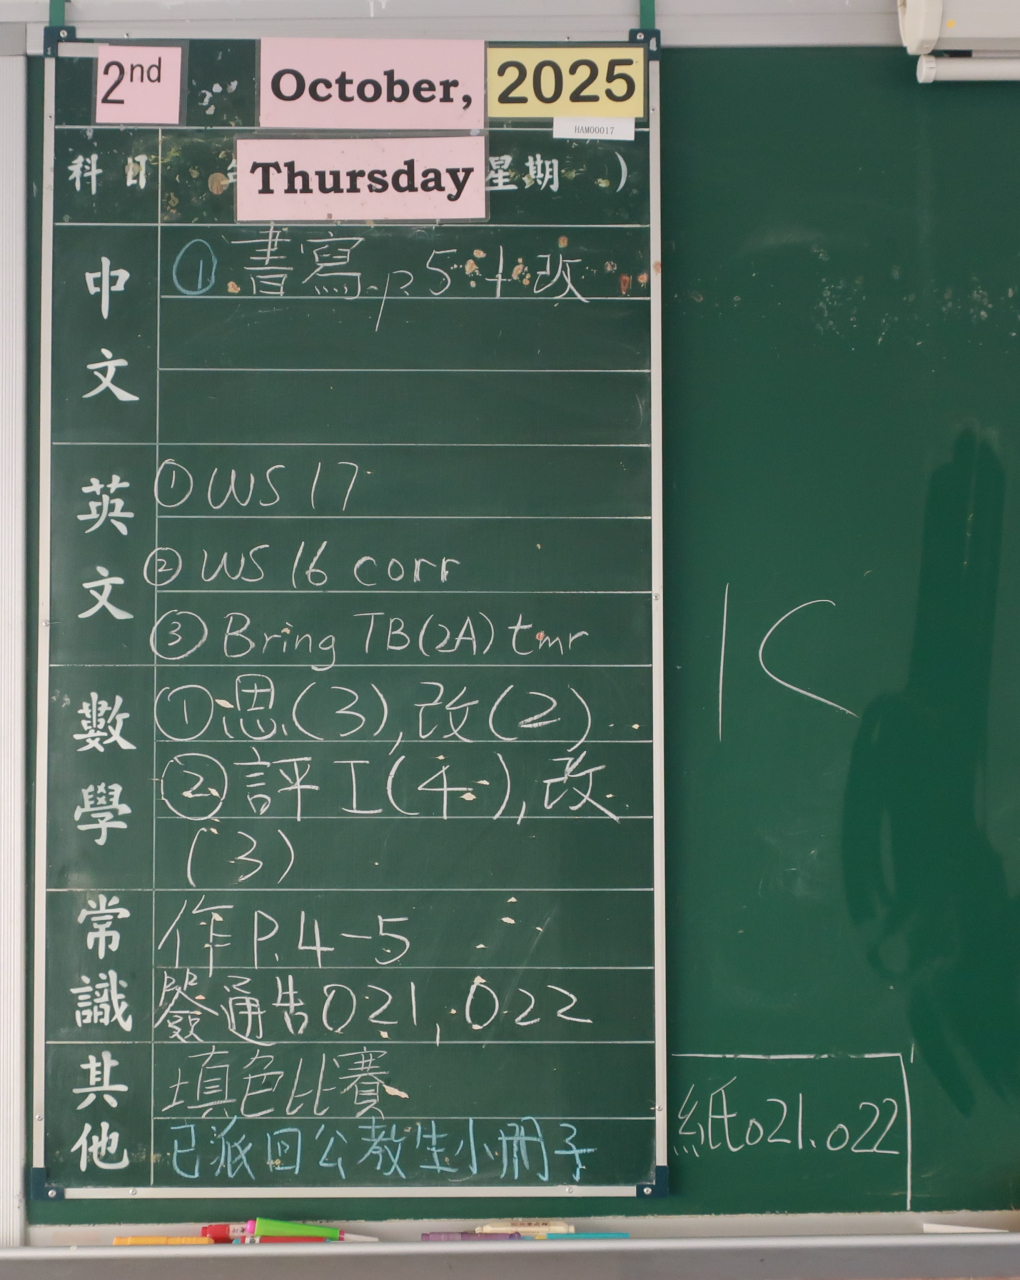 2nd October, 2025
HAM00017
科目 Thursday 星期 )
中文
① 書寫 p5+改
英文
① WS 17
② WS 16 corr
③ Bring TB(2A) tmr
數學
① 思(3), 改(2)
② 評工(4), 改
(3)
常識
作 P.4-5
簽通告021, 022
其他
填色比賽
已派回公教生小冊子
1C
紙021.022